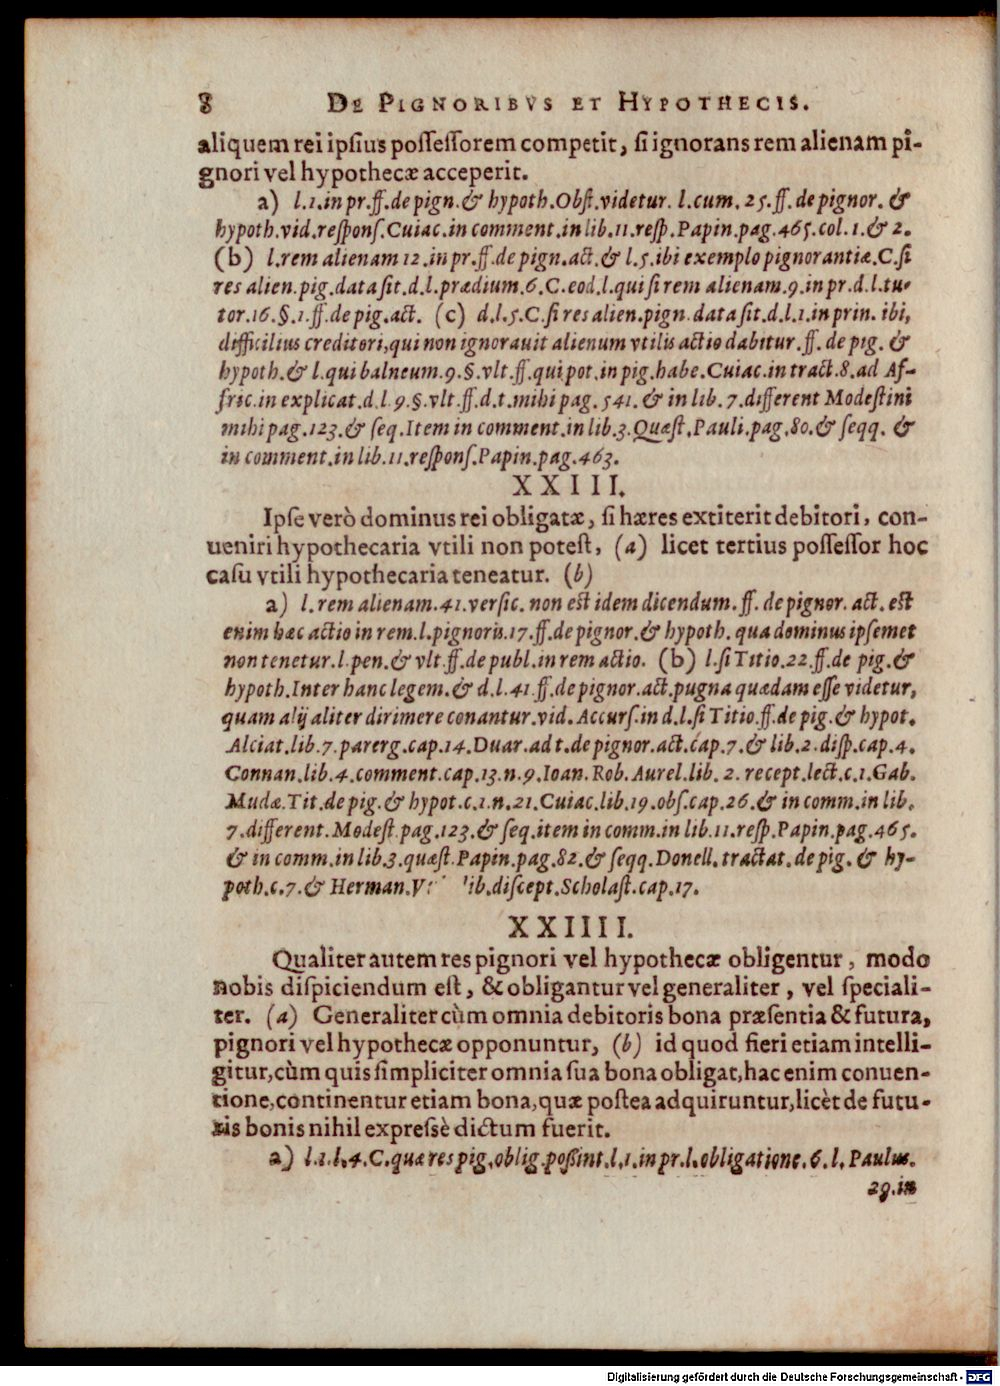 8 DE PIGNORIBVS ET HYPOTHECIS.
aliquem rei ipsius possessorem competit, si ignorans rem alienam pi-
gnori vel hypothecæ acceperit.
a) l.1.in pr.ff.de pign.& hypoth.Obst.videtur. l.cum. 25.ff. de pignor. &
hypoth.vid.respons.Cuiac.in comment.in lib.11.resp.Papin.pag.465.col.1.& 2.
(b) l.rem alienam 12.in pr.ff.de pign.act.& l.5.ibi exemplo pignorantiæ.C.si
res alien.pig.data sit.d.l.prædium.6.C.eod.l.qui si rem alienam.9.in pr.d.l.tu-
tor.16.§.1.ff.de pig.act. (c) d.l.5.C.si res alien.pign.data sit.d.l.1.in prin. ibi,
difficilius creditori,qui non ignorauit alienum vtilis actio dabitur.ff. de pig. &
hypoth.& l.qui balneum.9.§.vlt.ff.qui pot.in pig.habe.Cuiac.in tract.8.ad Af-
fric.in explicat.d.l.9.§.vlt.ff.d.t.mihi pag.541.& in lib.7.different Modestini
mihi pag.123.& seq.Item in comment.in lib.3.Quæst.Pauli.pag.80.& seqq. &
in comment.in lib.11.respons.Papin.pag.463.
XXIII.
Ipse verò dominus rei obligatæ, si hæres extiterit debitori, con-
ueniri hypothecaria vtili non potest, (a) licet tertius possessor hoc
casu vtili hypothecaria teneatur. (b)
a) l.rem alienam.41.versic. non est idem dicendum.ff. de pignor. act. est
enim hæc actio in rem.l.pignoris.17.ff.de pignor.& hypoth. qua dominus ipsemet
non tenetur.l.pen.& vlt.ff.de publ.in rem actio. (b) l.si Titio.22.ff.de pig.&
hypoth.Inter hanc legem.& d.l.41.ff.de pignor.act.pugna quædam esse videtur,
quam alij aliter dirimere conantur.vid.Accurs.in d.l.si Titio.ff.de pig.& hypot.
Alciat.lib.7.parerg.cap.14.Duar.ad t.de pignor.act.cap.7.& lib.2.disp.cap.4.
Connan.lib.4.comment.cap.13.n.9.Ioan.Rob.Aurel.lib. 2. recept.lect.c.1.Gab.
Mudæ.Tit.de pig.& hypot.c.1.n.21.Cuiac.lib.19.obs.cap.26.& in comm.in lib.
7.different.Modest.pag.123.& seq.item in comm.in lib.11.resp.Papin.pag.465.
& in comm.in lib.3.quæst.Papin.pag.82.& seqq.Donell.tractat.de pig. & hy-
poth.c.7.& Herman.V lib.discept.Scholast.cap.17.
XXIIII.
Qualiter autem res pignori vel hypothecæ obligentur, modo
nobis dispiciendum est, & obligantur vel generaliter, vel speciali-
ter. (a) Generaliter cùm omnia debitoris bona præsentia & futura,
pignori vel hypothecæ opponuntur, (b) id quod fieri etiam intelli-
gitur,cùm quis simpliciter omnia sua bona obligat,hac enim conuen-
tione,continentur etiam bona,quæ postea adquiruntur,licèt de futu-
ris bonis nihil expressè dictum fuerit.
a) l.1.l.4.C.quæ res pig.oblig.possint.l.1.in pr.l.obligatione.6.l.Paulus.
29.in
Digitalisierung gefördert durch die Deutsche Forschungsgemeinschaft - DFG